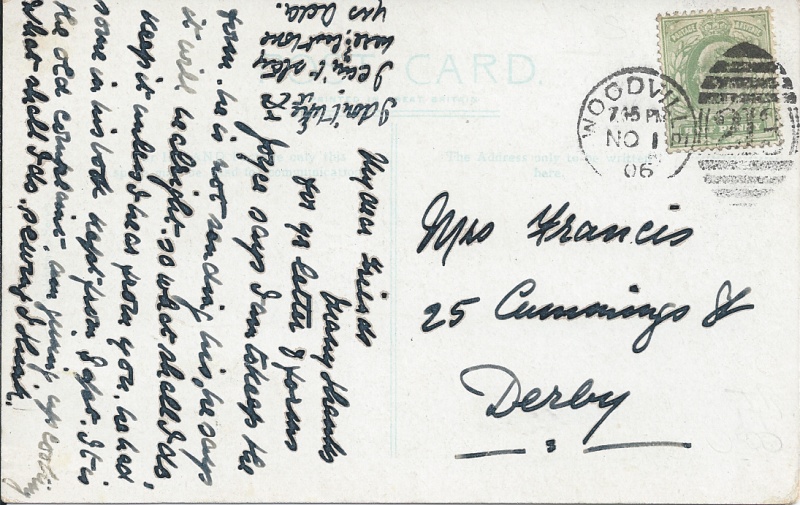 POST CARD.
The Address only to be written
here.
WOODVILLE
7.15 PM
NO 1
06
Mrs Francis
25 Cummings St
Derby
My dear Friends
Many thanks
for yr letter & forms
says I am to keep the
form. he is not sending his, he says
it will be alright. so what shall I do
keep it until I hear from you. he had
some in his book kept from Sept. It is
the old complaint am giving up
what shall I do, sewing I think.
I don't like it
I can't stay
here. best love
yrs Ada.